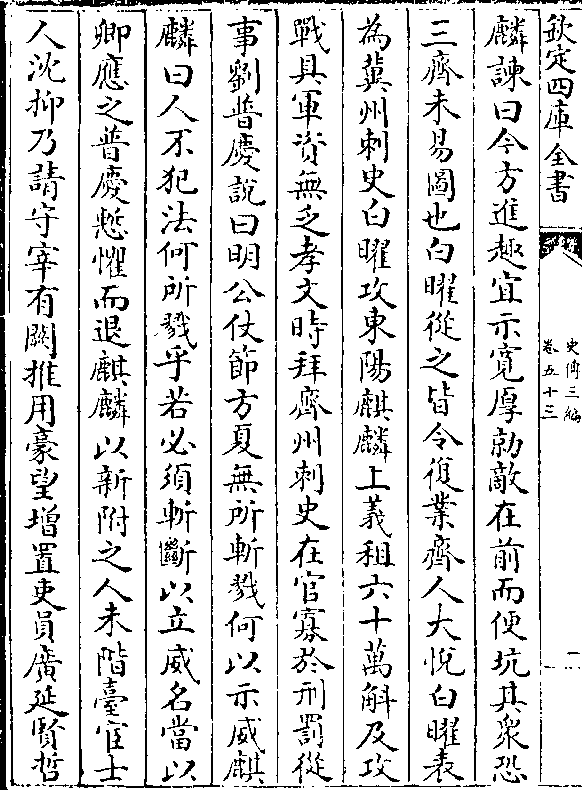 欽定四庫全書
史傳三編
卷五十三
一
麟諫曰今方進趣宜示寛厚勍敵在前而便坑其衆恐
三齊未易圖也白曜從之皆令復業齊人大悅白曜表
為冀州刺史白曜攻東陽麒麟上義租六十萬斛及攻
戰具軍資無乏孝文時拜齊州刺史在官寡於刑罰從
事劉普慶說曰明公仗節方夏無所斬戮何以示威麒
麟曰人不犯法何所戮乎若必須斬斷以立威名當以
卿應之普慶慙懼而退麒麟以新附之人未階臺宦士
人沈抑乃請守宰有闕推用豪望增置吏員廣延賢哲